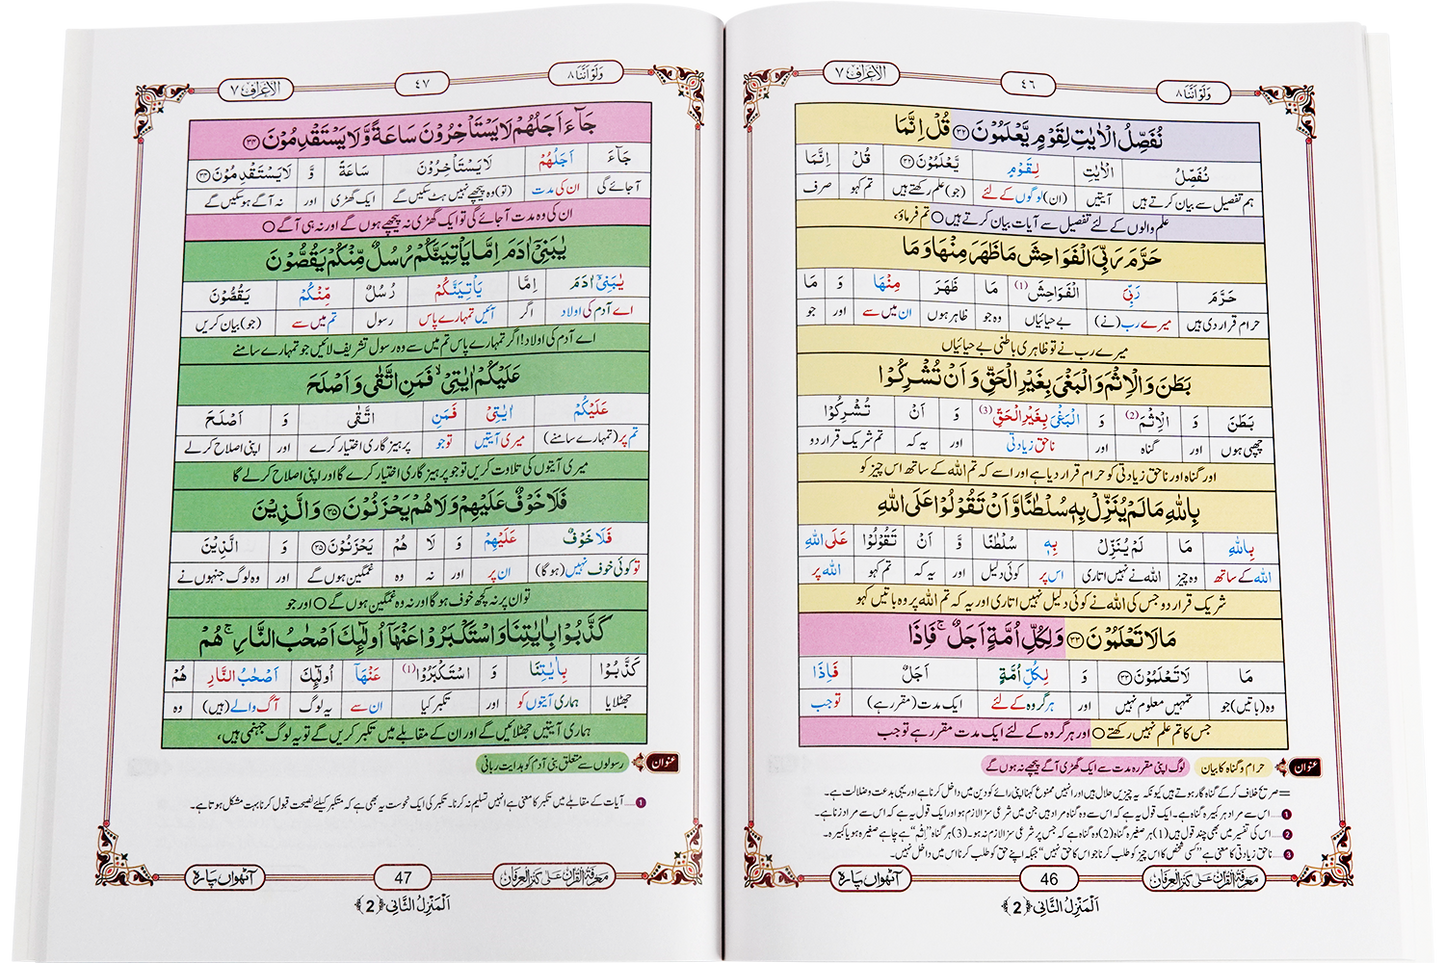 وَلَوْ اَنَّنَا ٨
٤٦
الاعراف ٧
نُفَصِّلُ الْاٰیٰتِ لِقَوْمٍ یَّعْلَمُوْنَ ﴿۳۲﴾ قُلْ اِنَّمَا
نُفَصِّلُ الْاٰیٰتِ لِقَوْمٍ یَّعْلَمُوْنَ ﴿۳۲﴾ قُلْ اِنَّمَا
ہم تفصیل سے بیان کرتے ہیں آیتیں (ان) لوگوں کے لئے (جو) علم رکھتے ہیں تم کہو صرف
علم والوں کے لئے تفصیل سے آیات بیان کرتے ہیں ○ تم فرماؤ،
حَرَّمَ رَبِّیَ الْفَوَاحِشَ مَا ظَهَرَ مِنْهَا وَ مَا
حَرَّمَ رَبِّیَ الْفَوَاحِشَ (1) مَا ظَهَرَ مِنْهَا وَ مَا
حرام قرار دی ہیں میرے رب (نے) بے حیائیاں وہ جو ظاہر ہوں ان میں سے اور جو
میرے رب نے تو ظاہری باطنی بے حیائیاں
بَطَنَ وَ الْاِثْمَ وَ الْبَغْیَ بِغَیْرِ الْحَقِّ وَ اَنْ تُشْرِكُوْا
بَطَنَ وَ الْاِثْمَ (2) وَ الْبَغْیَ بِغَیْرِ الْحَقِّ (3) وَ اَنْ تُشْرِكُوْا
چھپی ہوں اور گناہ اور ناحق زیادتی اور یہ کہ تم شریک قرار دو
اور گناہ اور ناحق زیادتی کو حرام قرار دیا ہے اور اسے کہ تم اللہ کے ساتھ اس چیز کو
بِاللّٰهِ مَا لَمْ یُنَزِّلْ بِهٖ سُلْطٰنًا وَّ اَنْ تَقُوْلُوْا عَلَى اللّٰهِ
بِاللّٰهِ مَا لَمْ یُنَزِّلْ بِهٖ سُلْطٰنًا وَّ اَنْ تَقُوْلُوْا عَلَى اللّٰهِ
اللہ کے ساتھ وہ چیز اللہ نے نہیں اتاری اس پر کوئی دلیل اور یہ کہ تم کہو اللہ پر
شریک قرار دو جس کی اللہ نے کوئی دلیل نہیں اتاری اور یہ کہ تم اللہ پر وہ باتیں کہو
مَا لَا تَعْلَمُوْنَ ﴿۳۳﴾ وَ لِكُلِّ اُمَّةٍ اَجَلٌۚ فَاِذَا
مَا لَا تَعْلَمُوْنَ ﴿۳۳﴾ وَ لِكُلِّ اُمَّةٍ اَجَلٌ فَاِذَا
وہ (باتیں) جو تمہیں معلوم نہیں اور ہر گروہ کے لئے ایک مدت (مقرر ہے) تو جب
جس کا تم علم نہیں رکھتے ○ اور ہر گروہ کے لئے ایک مدت مقرر ہے تو جب
عنوان حرام و گناہ کا بیان لوگ اپنی مقررہ مدت سے ایک گھڑی آگے پیچھے نہ ہوں گے
= صریح خلاف کر کے گناہ گار ہوتے ہیں کیونکہ یہ چیزیں حلال ہیں اور انہیں ممنوع کہنا اپنی رائے کو دین میں داخل کرنا ہے اور یہی بدعت و ضلالت ہے۔
1 اس سے مراد ہر کبیرہ گناہ ہے۔ ایک قول یہ ہے کہ اس سے وہ گناہ مراد ہیں جن میں شرعی سزا لازم ہو اور ایک قول یہ ہے کہ اس سے مراد زنا ہے۔
2 اس کی تفسیر میں بھی چند قول ہیں (1) ہر صغیرہ گناہ (2) وہ گناہ ہے کہ جس پر شرعی سزا لازم نہ ہو۔ (3) ہر گناہ "اِثم" ہے چاہے صغیرہ ہو یا کبیرہ۔
3 ناحق زیادتی کا معنی ہے "کسی شخص کا اس چیز کو طلب کرنا جو اس کا حق نہیں" جبکہ اپنے حق کو طلب کرنا اس میں داخل نہیں۔
معرفۃ القرآن علی کنز العرفان
46
آٹھواں پارہ
اَلْمَنْزِلُ الثَّانِی ﴿2﴾
وَلَوْ اَنَّنَا ٨
٤٧
الاعراف ٧
جَآءَ اَجَلُهُمْ لَا یَسْتَاْخِرُوْنَ سَاعَةً وَّ لَا یَسْتَقْدِمُوْنَ ﴿۳۴﴾
جَآءَ اَجَلُهُمْ لَا یَسْتَاْخِرُوْنَ سَاعَةً وَّ لَا یَسْتَقْدِمُوْنَ ﴿۳۴﴾
آ جائے گی ان کی مدت (تو) وہ پیچھے نہیں ہٹ سکیں گے ایک گھڑی اور نہ آگے ہو سکیں گے
ان کی وہ مدت آ جائے گی تو ایک گھڑی نہ پیچھے ہوں گے اور نہ ہی آگے ○
یٰبَنِیْۤ اٰدَمَ اِمَّا یَاْتِیَنَّكُمْ رُسُلٌ مِّنْكُمْ یَقُصُّوْنَ
یٰبَنِیْۤ اٰدَمَ اِمَّا یَاْتِیَنَّكُمْ رُسُلٌ مِّنْكُمْ یَقُصُّوْنَ
اے آدم کی اولاد اگر آئیں تمہارے پاس رسول تم میں سے (جو) بیان کریں
اے آدم کی اولاد! اگر تمہارے پاس تم میں سے وہ رسول تشریف لائیں جو تمہارے سامنے
عَلَیْكُمْ اٰیٰتِیْۙ فَمَنِ اتَّقٰى وَ اَصْلَحَ
عَلَیْكُمْ اٰیٰتِیْ فَمَنِ اتَّقٰى وَ اَصْلَحَ
تم پر (تمہارے سامنے) میری آیتیں تو جو پرہیزگاری اختیار کرے اور اپنی اصلاح کر لے
میری آیتوں کی تلاوت کریں تو جو پرہیزگاری اختیار کرے گا اور اپنی اصلاح کر لے گا
فَلَا خَوْفٌ عَلَیْهِمْ وَ لَا هُمْ یَحْزَنُوْنَ ﴿۳۵﴾ وَ الَّذِیْنَ
فَلَا خَوْفٌ عَلَیْهِمْ وَ لَا هُمْ یَحْزَنُوْنَ ﴿۳۵﴾ وَ الَّذِیْنَ
تو کوئی خوف نہیں (ہوگا) ان پر اور نہ وہ غمگین ہوں گے اور وہ لوگ جنہوں نے
تو ان پر نہ کچھ خوف ہوگا اور نہ وہ غمگین ہوں گے ○ اور جو
كَذَّبُوْا بِاٰیٰتِنَا وَ اسْتَكْبَرُوْا عَنْهَاۤ اُولٰٓىٕكَ اَصْحٰبُ النَّارِۚ هُمْ
كَذَّبُوْا بِاٰیٰتِنَا وَ اسْتَكْبَرُوْا (1) عَنْهَاۤ اُولٰٓىٕكَ اَصْحٰبُ النَّارِ هُمْ
جھٹلایا ہماری آیتوں کو اور تکبر کیا ان سے یہ لوگ آگ والے (ہیں) وہ
ہماری آیتیں جھٹلائیں گے اور ان کے مقابلے میں تکبر کریں گے تو یہ لوگ جہنمی ہیں،
عنوان رسولوں سے متعلق بنی آدم کو ہدایت ربانی
1 آیات کے مقابلے میں تکبر کا معنی ہے انہیں تسلیم نہ کرنا۔ تکبر کی ایک نحوست یہ بھی ہے کہ متکبر کیلئے نصیحت قبول کرنا بہت مشکل ہوتا ہے۔
معرفۃ القرآن علی کنز العرفان
47
آٹھواں پارہ
اَلْمَنْزِلُ الثَّانِی ﴿2﴾